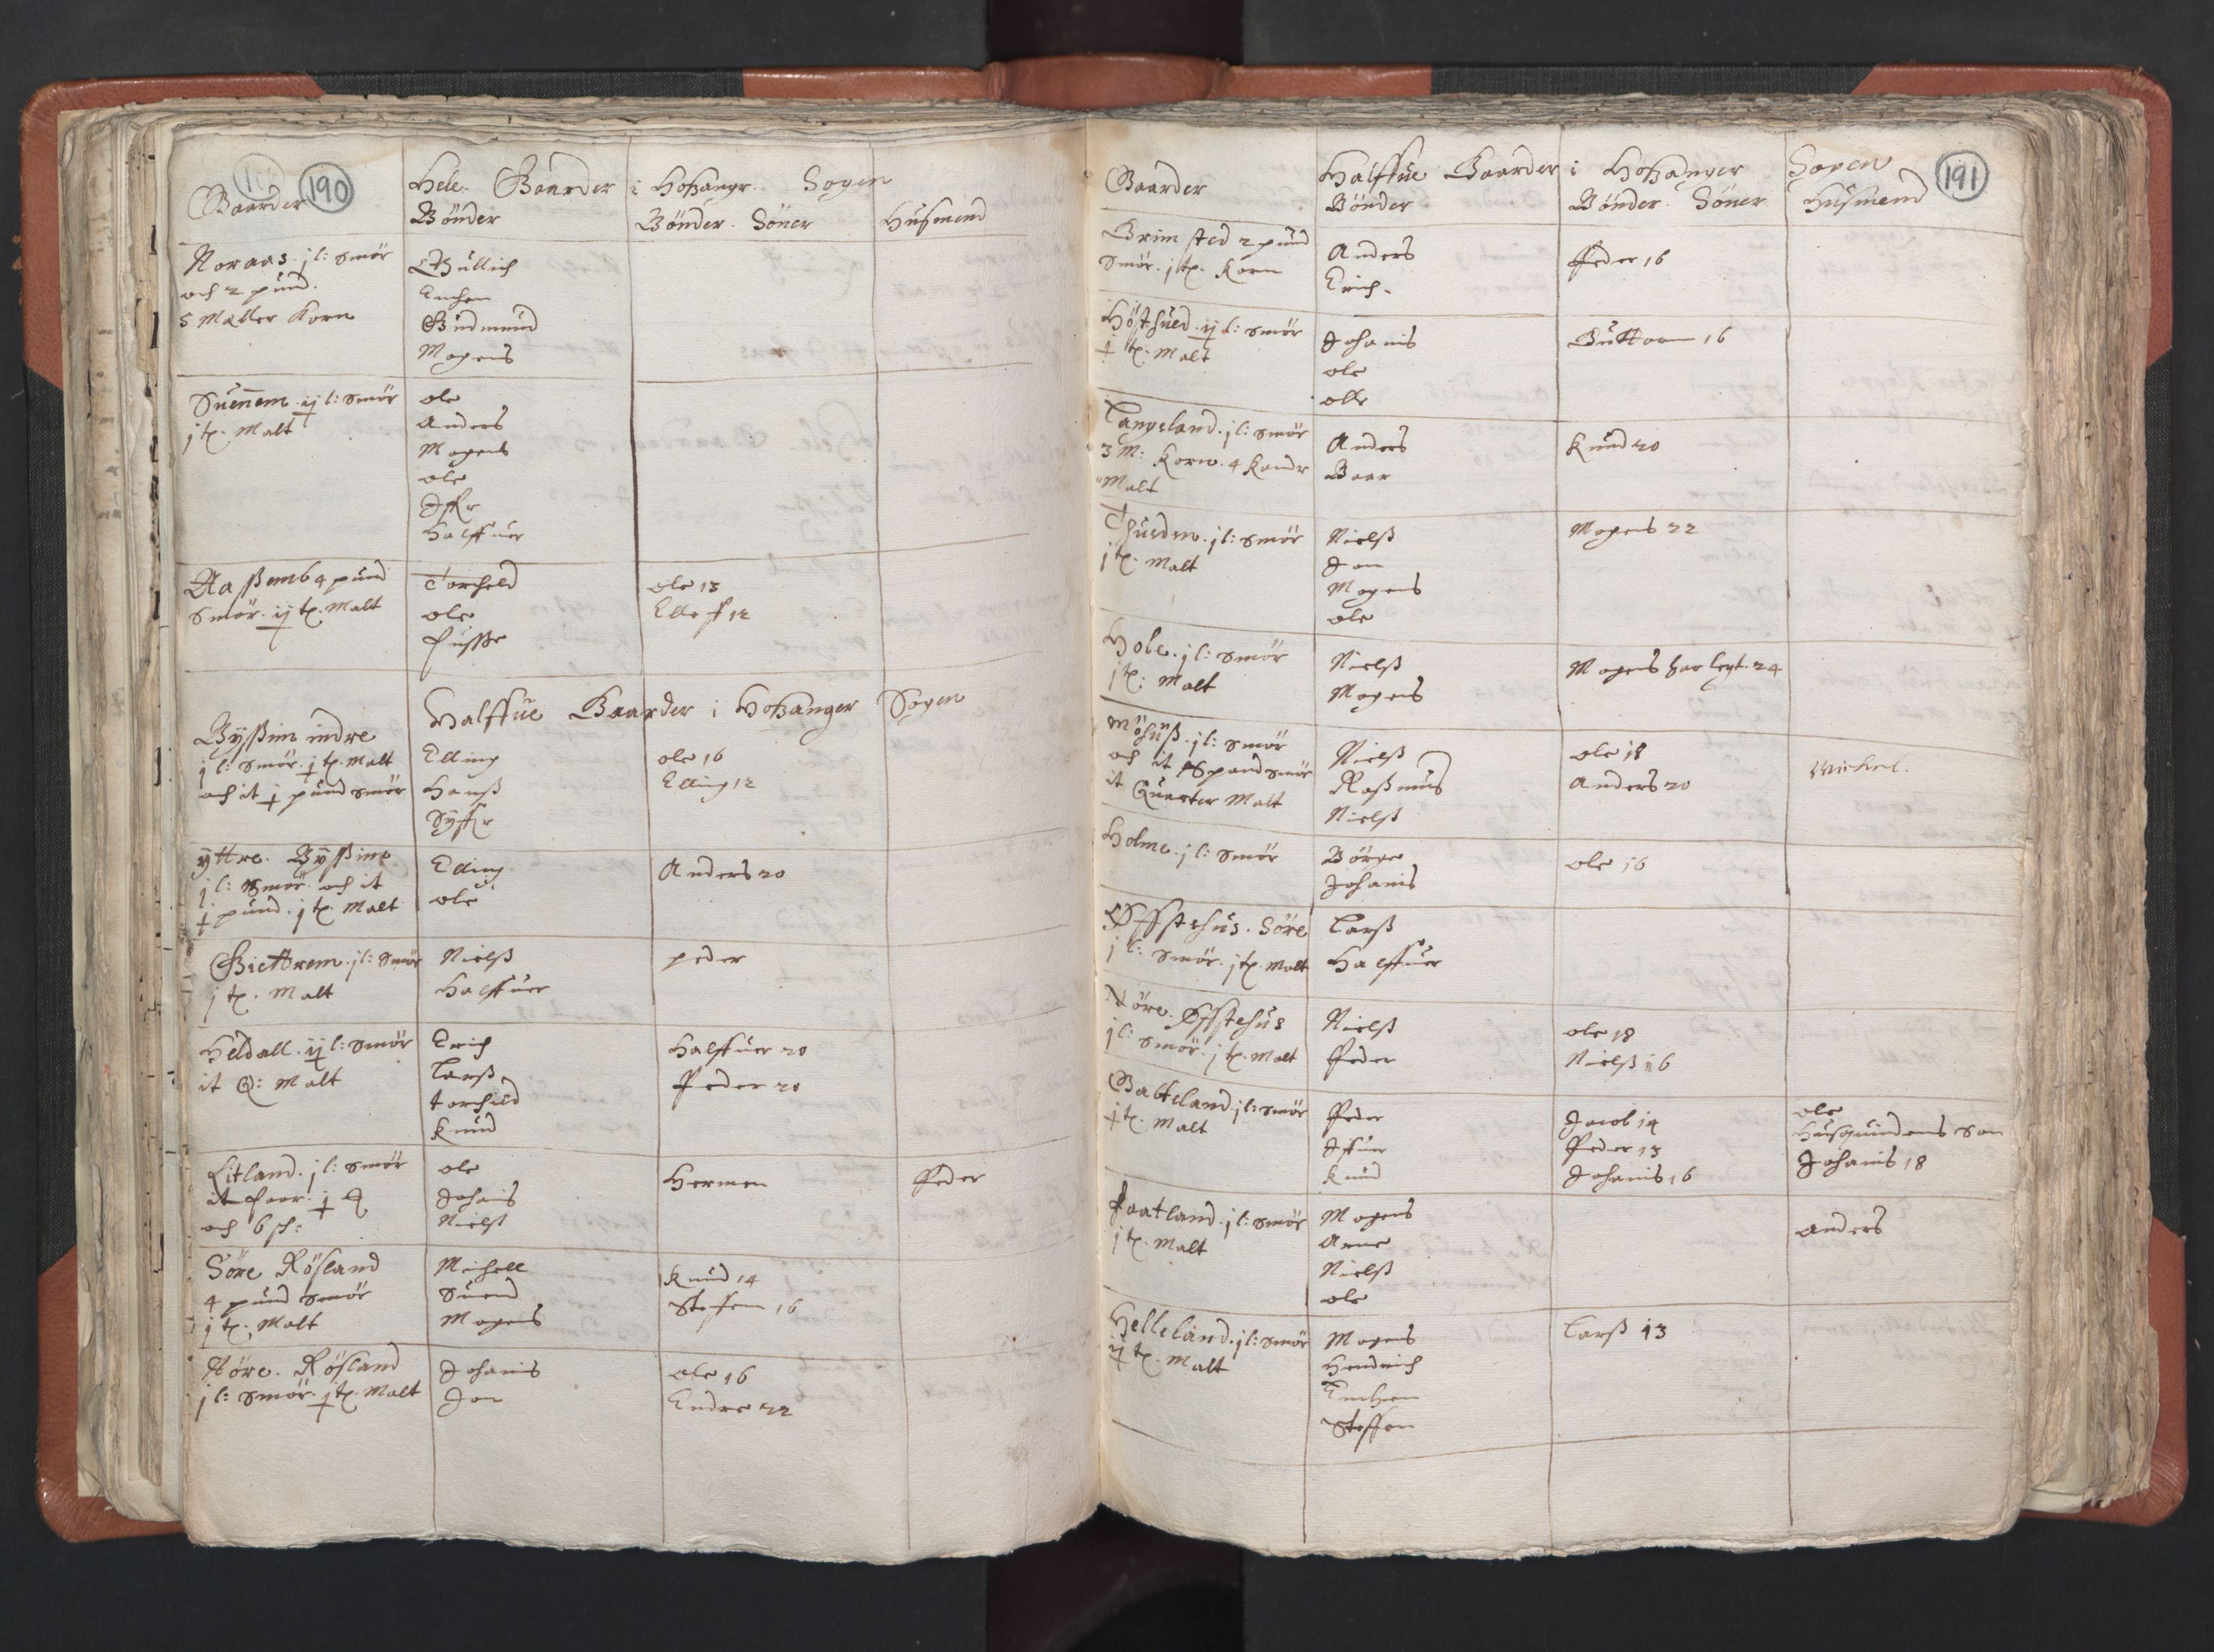 190
Gaarder
Hele Gaarder i Hoßangr. Sogen
Bönder
Bönder. Söner
Husmend
Noraas. j l: smör
och 2 pund.
5 Mæller Korn
Gullich
Gudmund
Mogens
Suenem. l: smör
j tp. Malt
ole
Anders
Mogens
ole
Halffuer
Aaßemb 4 pund
Smör. tp. Malt
Torcheld
ole
ole 13
Elleff 12
Halffue Gaarder i Hoßanger Sogen
Byßim indre
j l: smör. tp. Malt
och it pund smör
Elling
Hanß
ole 16
Elling 12
yttre. Byßim
j l: Smör. och it
pund. j tp. Malt
Elling
ole
Anders 20
Giettrem. j l: smör
j tp. Malt
Nielß
Halffuer
peder
Heldall. l: smör
it Q: Malt
Erich
Larß
torchild
Knud
Halffuer 20
Peder 20
Litland. j l: smör
och 6 sk:
ole
Johanis
Nielß
Hermen
Peder
Söre Rösland
4 pund smör
j tp. Malt
Michell
Suend
Mogens
Knud 14
Steffen 16
Nöre. Rösland
j l: smör. tp. Malt
Johanis
Jon
ole 16
Endre 22
191
Gaarder
Halffue Gaarder i Hoßanger Sogen
Bönder
Bönder. Söner
Husmend
Brimsted 2 pund
smör. j tp. Korn
Anders
Erich.
Peder 16
Hösthued. l: smör
tp. Malt
Johanis
ole
olle
Guttorm 16
Tangeland. j l: smör
3 M: Korn. 4 Kandr
Malt
Anders
Baar
Knud 20
Thueden. j l: smör
j tp. Malt
Nielß
Jon
Mogens
ole
Mogens 22
Hole. j l: smör
j tp: Malt
Nielß
Mogens
Mogens har legt. 24
Möhuß. j l: smör
och it Spand smör
it Quarter Malt
Nielß
Raßmus
Nielß
ole 18
Anders 20
Michel.
Holme. j l: smör
Börge
Johanis
ole 16
Øffstehus. Söre
j l: smör. j tp. Malt
Larß
Halffuer
Nöre. Øffstehus
j l: smör. j tp. Malt
Nielß
Peder
ole 18
Nielß 16
j l: smör
tp. Malt
Peder
Iffuer
Knud
Jacob 14
Peder 13
Johanis 16
ole
Husquindens son
Johanis 18
j l: smör
j tp. Malt
Mogens
Arne
Nielß
ole
anders
Helleland. j l: smör
tp. Malt
Mogens
Hendrich
Steffen
Larß 13